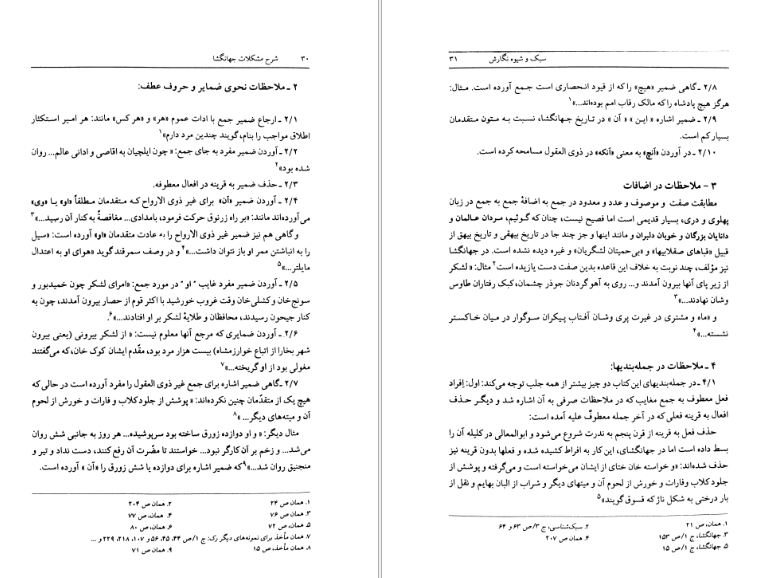 شرح مشکلات جهانگشا
۳۰
۲ ـ ملاحظات نحوی ضمایر و حروف عطف:
۲/۱ ـ ارجاع ضمیر جمع با ادات عموم «هر» و «هر کس» مانند: هر امیر استکثار
اطلاق مواجب را بنام، گویند چندین مرد دارم»۱
۲/۲ ـ آوردن ضمیر مفرد به جای جمع: «چون ایلچیان به اقاصی و ادانی عالم... روان
شده بود»۲
۲/۳ ـ حذف ضمیر به قرینه در افعال معطوفه.
۲/۴ ـ آوردن ضمیر «آن» برای غیر ذوی الارواح که متقدمان مطلقاً «او» یا «وی»
می‌آورده‌اند مانند: «بر راه زرنوق حرکت فرمود، بامدادی... مغافصةً به کنار آن رسید...»۳
وگاهی هم نیز ضمیر غیر ذوی الارواح را به عادت متقدمان «او» آورده است: «سیل
را به انباشتن ممر او باز نتوان داشت...»۴ و در وصف سمرقند گوید «هوای او به اعتدال
مایلتر...»۵
۲/۵ ـ آوردن ضمیر مفرد غایب "او" در مورد جمع: «امرای لشکر چون خمیدبور و
سونج‌خان و کشلی‌خان وقت غروب خورشید با اکثر قوم از حصار بیرون آمدند، چون به
کنار جیحون رسیدند، محافظان و طلایهٔ لشکر بر او افتادند...»۶
۲/۶ ـ آوردن ضمایری که مرجع آنها معلوم نیست: « از لشکر بیرونی (یعنی بیرون
شهر بخارا از اتباع خوارزمشاه) بیست هزار مرد بود، مقدّم ایشان کوک خان، که می‌گفتند
مغولی بود از او گریخته...»۷
۲/۷ ـ گاهی ضمیر اشاره برای جمع غیر ذوی العقول را مفرد آورده است در حالی که
هیچ یک از متقدّمان چنین نکرده‌اند: « پوشش از جلود کلاب و فارات و خورش از لحوم
آن و میته‌های دیگر... » ۸
مثال دیگر: « و او دوازده زورق ساخته بود سرپوشیده... هر روز به جانبی شش روان
می‌شد... و زخم بر آن کارگر نبود... خواستند تا مضّرت آن رفع کنند، دست نداد و تیر و
منجنیق روان شد...»۹ که ضمیر اشاره برای دوازده یا شش زورق را «آن » آورده است.
۱. همان ص ۲۴
۲. همان ص ۲۰۴
۳. همان ص ۷۶
۴. همان ص ۷۷
۵. همان ص ۷۲
۶. همان ص ۸۰
۷. همان مأخذ برای نمونه‌های دیگر رک: ج ۱/ص ۴۴، ۴۵، ۵۶ و ۱۰۷، ۲۱۸، ۲۲۹ و ...
۸. همان مأخذ، ص ۱۵
۹. همان ص ۷۱
سبک و شیوه نگارش
۳۱
۲/۸ ـ گاهی ضمیر «هیچ» را که از قیود انحصاری است جمع آورده است. مثال:
هرگز هیچ پادشاه را که مالک رقاب امم بوده‌اند...»۱
۲/۹ ـ ضمیر اشاره « این » « آن » در تاریخ جهانگشا، نسبت به متون متقدمان
بسیار کم است.
۲/۱۰ ـ در آوردن «آنچ» به معنی «آنکه» در ذوی العقول مسامحه کرده است.
۳ - ملاحظات در اضافات
مطابقت صفت و موصوف و عدد و معدود در جمع به اضافهٔ جمع به جمع در زبان
پهلوی و دری، بسیار قدیمی است اما فصیح نیست، چنان که گوئیم، سردان عالمان و
دانایان بزرگان و خوبان دلبران و مانند اینها و جز چند جا در تاریخ بیهقی و تاریخ بیهق از
قبیل «قباهای صقلابیها» و «بی‌حمیتان لشگریان» و غیره دیده نشده است. در جهانگشا
نیز مؤلف، چند نوبت به خلاف این قاعده بدین صفت دست یازیده است۲ مثال: « لشکر
از زیر پای آنها بیرون آمدند و... روی به آهو گردنان جوذر چشمان، کبک رفتاران طاوس
وشان نهادند...»۳
و «ماه و مشتری در غیرت پری وشان آفتاب پیکران سوگوار در میان خاکستر
نشسته...»۴
۴ ـ ملاحظات در جمله‌بندیها:
۴/۱ ـ در جمله‌بندیهای این کتاب دو چیز بیشتر از همه جلب توجه می‌کند: اول: اِفراد
فعل معطوف به جمع مغایب که در ملاحظات صرفی به آن اشاره شد و دیگر حذف
افعال به قرینه فعلی که در آخر جمله معطوفٌ علیه آمده است:
حذف فعل به قرینه از قرن پنجم به ندرت شروع می‌شود و ابوالمعالی در کلیله آن را
بسط داده است اما در جهانگشای، این کار به افراط کشیده شده و فعلها بدون قرینه نیز
حذف شده‌اند: «و خواسته خان ختای از ایشان می‌خواسته است و می‌گرفته و پوشش از
جلود کلاب وفارات و خورش از لحوم آن و میتهای دیگر و شراب از البان بهایم و نقل از
بار درختی به شکل ناژ که قسوق گویند»۵
۱. همان، ص ۲۱
۲. سبک‌شناسی، ج ۳/ص ۶۳ و ۶۴
۳. جهانگشا، ج ۱/ص ۱۵۳
۴. همان ص ۲۰۷
۵. جهانگشا، ج ۱/ص ۱۵